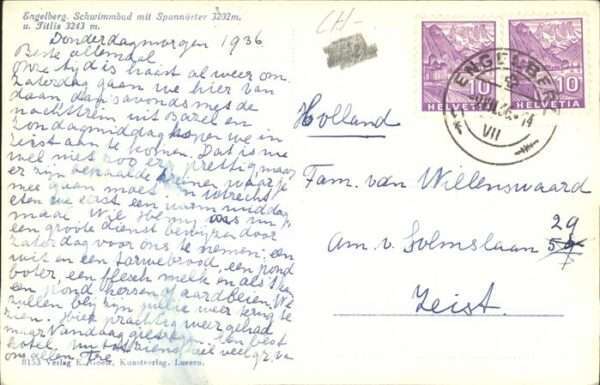 Engelberg. Schwimmbad mit Spannörter 3202m.
u. Titlis 3243 m.
Donderdagmorgen 1936
Beste allemaal
onze tijd is haast al weer om.
Zaterdag gaan we hier van
daan dan 's avonds met de
nachttrein uit Basel en
Zondagmiddag hopen we in
Zeist aan te komen. Dat is
wel niet zoo erg prettig, maar
er zijn bepaalde treinen waar je
mee gaan moet. In Utrecht
eten we eerst een warm middag
maal. Wil
een groote dienst bewijzen door
zaterdag voor ons te nemen: een
wit en een tarwebrood, een pond
boter, een flesch melk en als 't kan
een pond kersen of aardbeien. We
zullen blij zijn jullie weer terug te
zien. Hier prachtig weer gehad
maar Vandaag een best
hotel. veel
om allen
8153 Verlag E. Goetz, Kunstverlag, Luzern.
CH-
HELVETIA 10
HELVETIA 10
ENGELBERG
VII
Holland
Fam. van Willenswaard
29
Am. v. Solmslaan 54
Zeist.